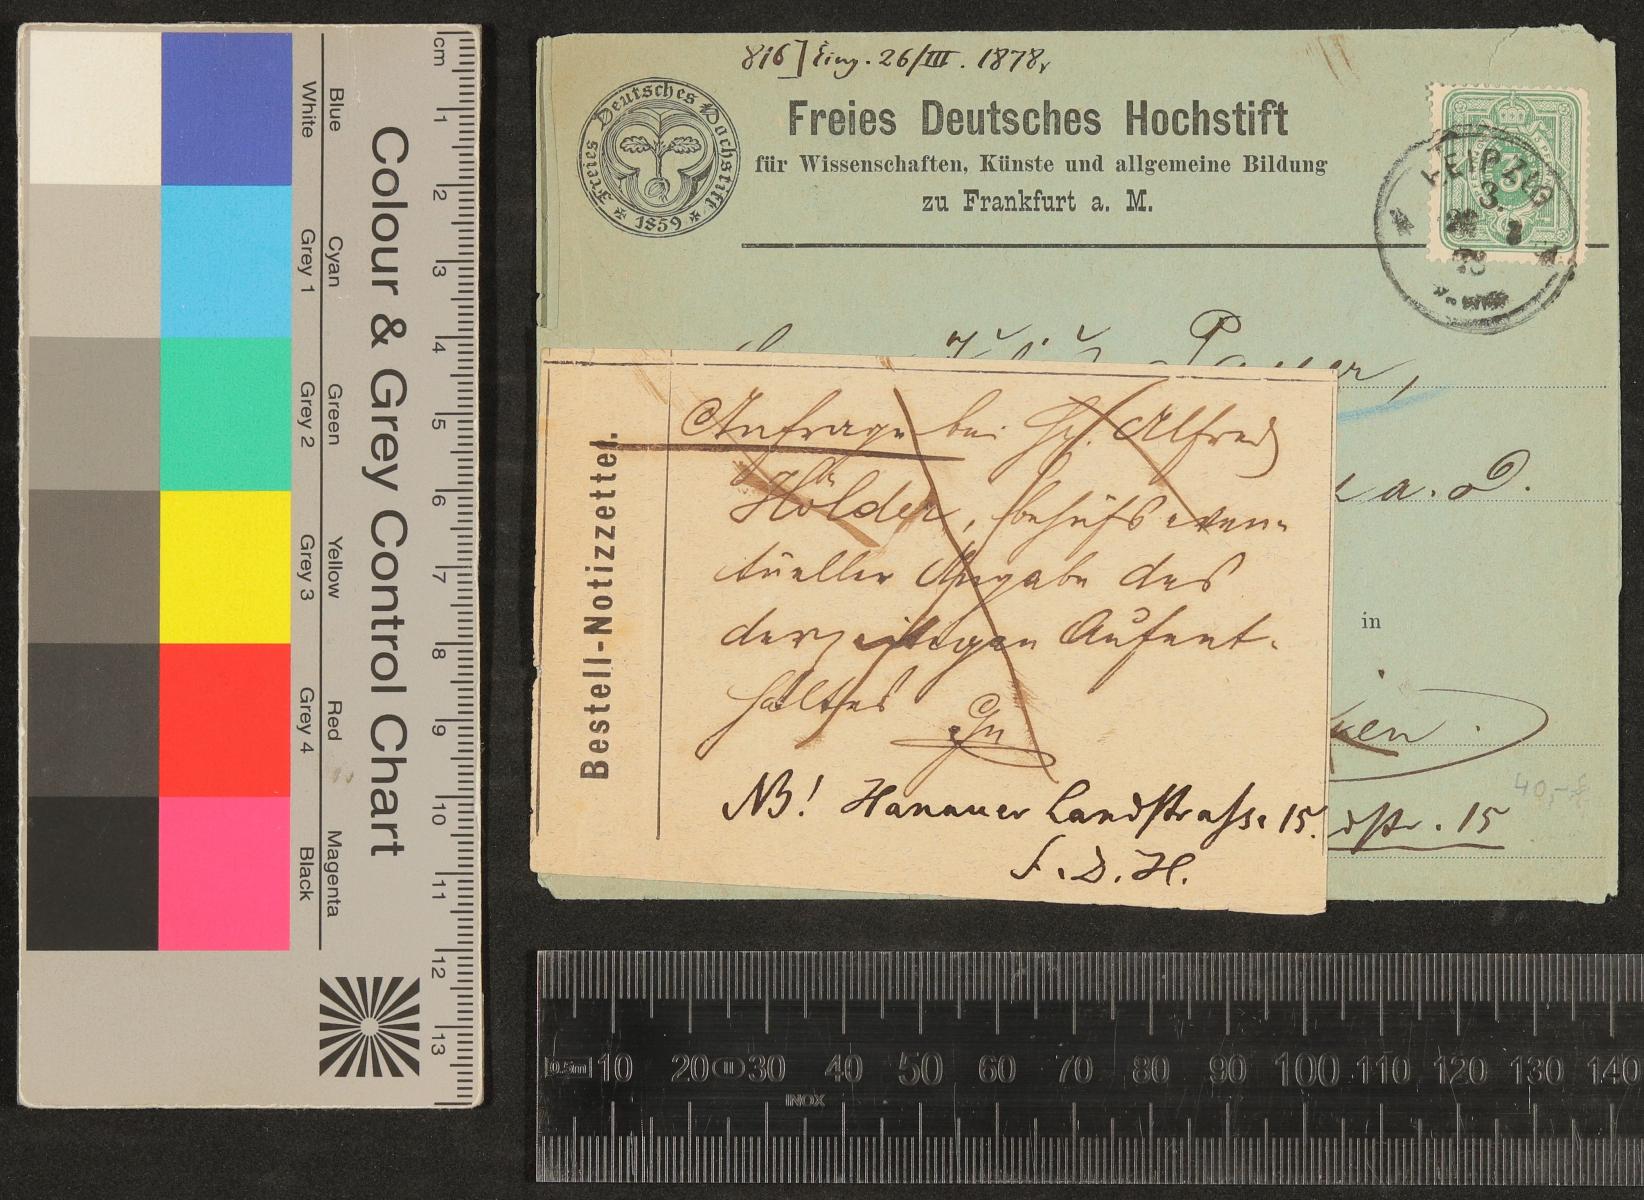 816] Eing. 26/III. 1878.
Freies Deutsches Hochstift
1859
Freies Deutsches Hochstift
für Wissenschaften, Künste und allgemeine Bildung
zu Frankfurt a. M.
LEIPZIG
3
Payer,
a. D.
in
dstr. 15
40,-
Bestell-Notizzettel.
Anfrage bei H. Alfred
Hölder, behufs even-
tueller Angabe des
derzeitigen Aufent-
haltes
NB! Hanauer Landstrasse 15.
F. D. H.
Colour & Grey Control Chart
Blue
White
Cyan
Grey 1
Green
Grey 2
Yellow
Grey 3
Red
Grey 4
Magenta
Black
cm
1
2
3
4
5
6
7
8
9
10
11
12
13
0.5m 10 20 30 40 50 60 70 80 90 100 110 120 130 140
INOX